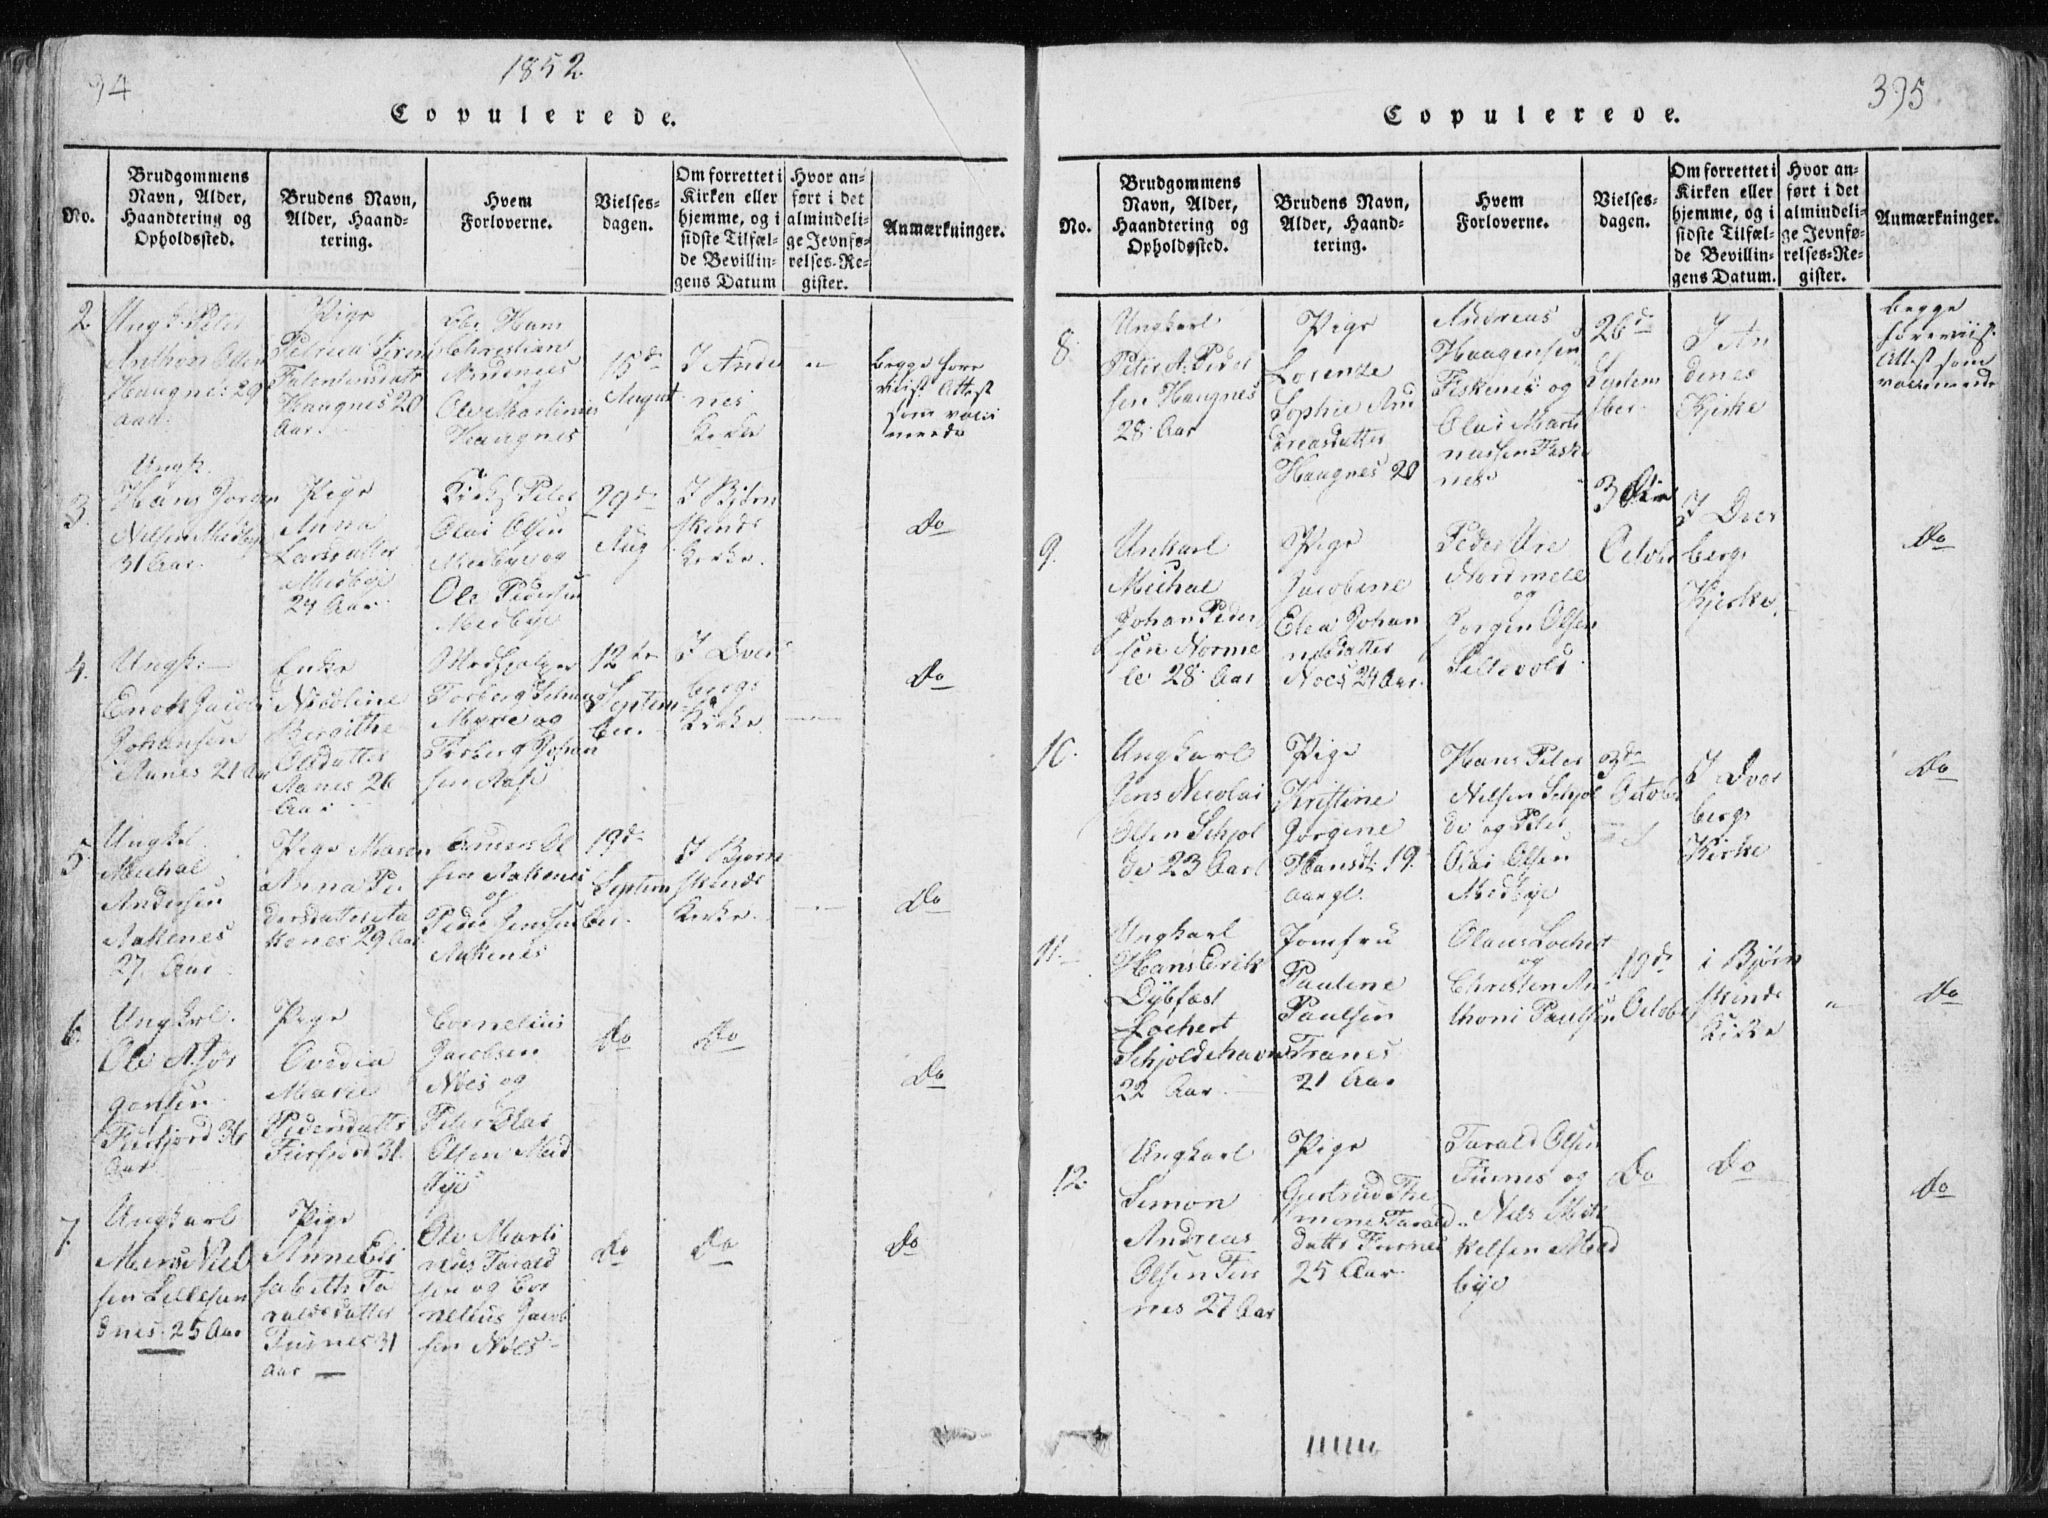 94
1852
Copulerede.
No.
Brudgommens
Navn, Alder,
Haandtering og
Opholdssted.
Brudens Navn,
Alder, Haand-
tering.
Hvem
Forloverne.
Vielses-
dagen.
Om forrettet i
Kirken eller
hjemme, og i
sidste Tilfæl-
de Bevillin-
gens Datum
Hvor an-
ført i det
almindeli-
ge Jevnfø-
relses-Re-
gister.
Anmærkninger.
2.
Ungk. Peter
Anthon Olsen
Haugnes 29
aar.
Pige
Petrica
Haugnes 20
Aar.
Hans
Christian
Andenes
og
Ole Martinus
Haugnes
15de
August
I Ande
nes
Kirke
Begge fore
viist Attest
som vacci
nerede
3.
Ungk.
Hans Joran
Nilsen Medbye
31 Aar.
Pige
Anna
Larsdatter
Medbye
24 Aar.
Peter
Olai Olsen
Medbye og
Ole Pedersen
Medbye
29de
Aug
I Bjørn
skinds
Kirke.
Do
4.
Ungk.
Enok Jacob
Johansen
Aanes 21 Aar
Enke
Nicoline
Bergithe
Olsdatter
Aanes 26
Aar
Torberg
Myre og
Torberg Johan
sen
12te
Septem
ber.
I Dver
bergs
Kirke
Do
5.
Ungkl.
Michal
Andersen
Aakenes
27 Aar
Pige Maren
Anna Pe
dersdatter Aa
kenes 29 Aar
Ol
sen Aakenes
og
Peder Jensen
Aakenes
19de
Septem
ber.
I Bjørn
skinds
Kirke.
Do
6.
Ungkrl.
Ole A. Jør
gensen
Aar
Pige
Ovedia
Marie
Pedersdattr
31.
Cornelius
Jacobsen
Noes og
Peter Olai
Olsen Med
bye
Do
Do
Do
7.
Ungkarl
Mons Niel
sen Lillesan
dnes 25 Aar
Pige
Anne Eli
sabeth Ta
raldsdatter
31
aar
Ole Marti
nus Tarald
sen og Cor
nelius Jacob
sen Noes
Do
Do
Do
395
Copulerede.
No.
Brudgommens
Navn, Alder,
Haandtering og
Opholdssted.
Brudens Navn,
Alder, Haand-
tering.
Hvem
Forloverne.
Vielses-
dagen.
Om forrettet i
Kirken eller
hjemme, og i
sidste Tilfæl-
de Bevillin-
gens Datum.
Hvor an-
ført i det
almindeli-
ge Jevnfø-
relses-Re-
gister.
Anmærkninger.
8.
Ungkarl
Peter A. Peder
sen Haugnes
28 Aar
Pige
Lorentze
Sophie And
dreasdatter
Haugnes 20
Andreas
Haagensen
Fiskenes og
Olai Marti
nussen Fiske
nes
26de
Septem
ber.
I An
denes
Kjirke
Begge
foreviist
Attest som
vaccinerede
9.
Unkarl
Michal
Johan Peder
sen Norme
le 28 Aar
Pige
Jacobine
Elea Johan
nesdatter
Noes 24 Aar.
Peder Ure
Nordmele
og
Jørgen Olsen
3die
October
I Dver
bergs
Kjerke.
Do
10.
Ungkarl
Jens Nicolai
Olsen Schjol
de 23 Aar
Pige
Kristine
Jørgine
Hansdt. 19.
aar gl.
Hans Peter
Nilsen Schjol
de og Peter
Olai Olsen
Medbye
3de
October
I Dver
bergs
Kirke
Do
11.
Ungkarl
Hans Erik
Dybfest
Lochert
Schjoldehavn
22 Aar.
Jomfru
Pauline
Paulsen
Tranes
21 Aar
Olaus Lochert
og
Christen An
thoni Paulsen
10de
October
i Bjørn
skinds
Kirke
Do
12.
Ungkarl
Simon
Andreas
Olsen Fur
nes 27 Aar
Pige
Gertrud The
mine Tarald
datter Furnes
25 Aar
Tarald Olsen
Furnes og
Nils Mik
kelsen Med
bye
Do
Do
Do